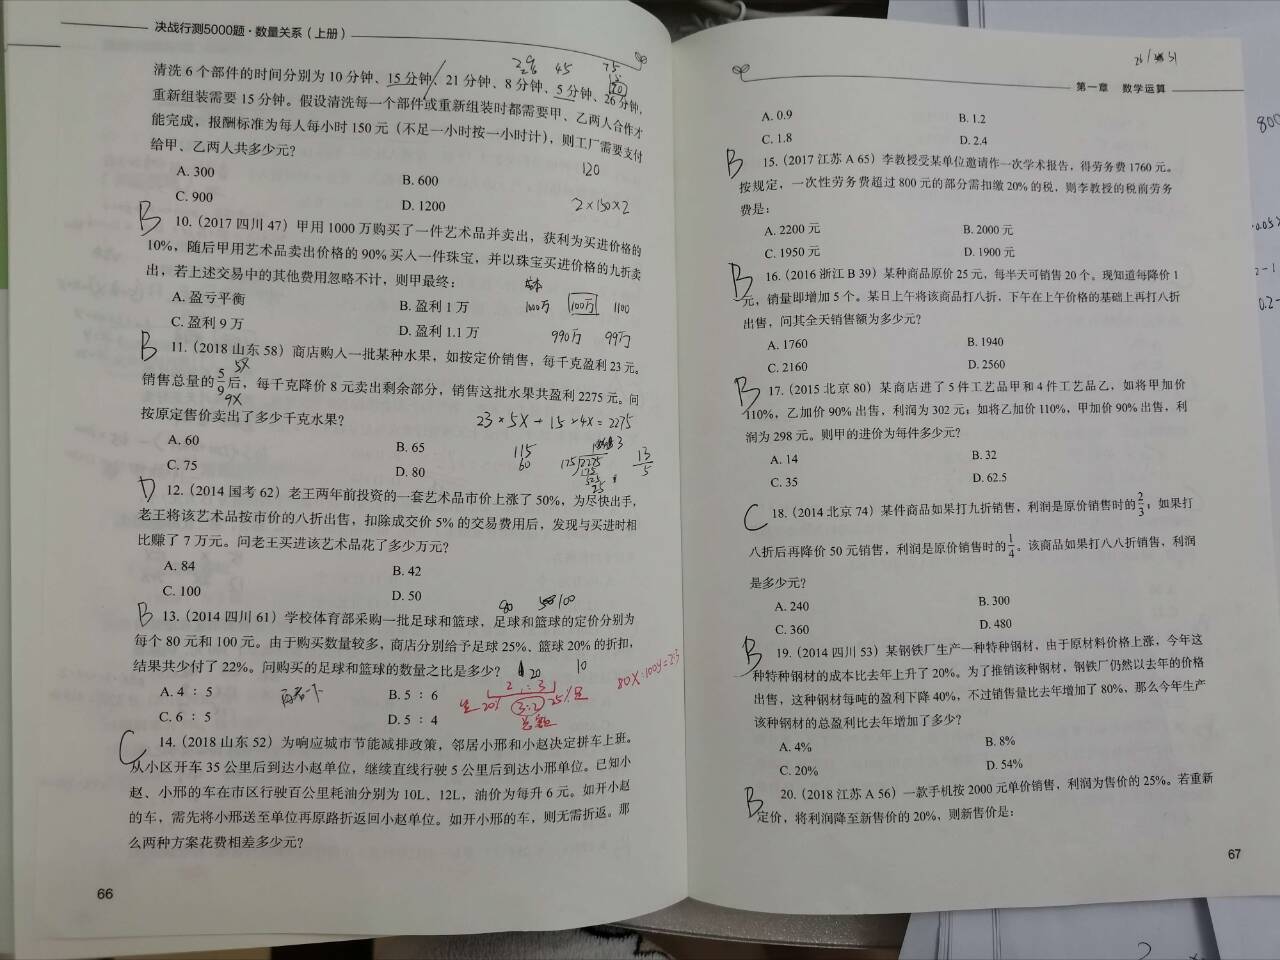 决战行测5000题·数量关系（上册）
清洗6个部件的时间分别为10分钟、15分钟、21分钟、8分钟、5分钟、26分钟，
重新组装需要15分钟。假设清洗每一个部件或重新组装时都需要甲、乙两人合作才
能完成，报酬标准为每人每小时150元（不足一小时按一小时计），则工厂需要支付
给甲、乙两人共多少元？
A. 300
B. 600
C. 900
D. 1200
120
2×150×2
B
10.（2017四川47）甲用1000万购买了一件艺术品并卖出，获利为买进价格的
10%，随后甲用艺术品卖出价格的90%买入一件珠宝，并以珠宝买进价格的九折卖
出，若上述交易中的其他费用忽略不计，则甲最终：
A. 盈亏平衡
B. 盈利1万
C. 盈利9万
D. 盈利1.1万
1000万 100万 1100
990万 99万
B
11.（2018山东58）商店购入一批某种水果，如按定价销售，每千克盈利23元。
5X
销售总量的5/9后，每千克降价8元卖出剩余部分，销售这批水果共盈利2275元。问
9X
按原定售价卖出了多少千克水果？
23×5X+15×4X=2275
A. 60
B. 65
C. 75
D. 80
115
60
175 2275
13
5
D
12.（2014国考62）老王两年前投资的一套艺术品市价上涨了50%，为尽快出手，
老王将该艺术品按市价的八折出售，扣除成交价5%的交易费用后，发现与买进时相
比赚了7万元。问老王买进该艺术品花了多少万元？
A. 84
B. 42
C. 100
D. 50
80 100
B
13.（2014四川61）学校体育部采购一批足球和篮球，足球和篮球的定价分别为
每个80元和100元。由于购买数量较多，商店分别给予足球25%、篮球20%的折扣，
结果共少付了22%。问购买的足球和篮球的数量之比是多少？
20 10
A. 4：5
B. 5：6
C. 6：5
D. 5：4
2 : 3
20% 3:2 25%足
80X:100y=2:3
C
14.（2018山东52）为响应城市节能减排政策，邻居小邢和小赵决定拼车上班。
从小区开车35公里后到达小赵单位，继续直线行驶5公里后到达小邢单位。已知小
赵、小邢的车在市区行驶百公里耗油分别为10L、12L，油价为每升6元。如开小赵
的车，需先将小邢送至单位再原路折返回小赵单位。如开小邢的车，则无需折返。那
么两种方案花费相差多少元？
66
第一章 数学运算
A. 0.9
B. 1.2
C. 1.8
D. 2.4
B
15.（2017江苏A 65）李教授受某单位邀请作一次学术报告，得劳务费1760元。
按规定，一次性劳务费超过800元的部分需扣缴20%的税，则李教授的税前劳务
费是：
A. 2200元
B. 2000元
C. 1950元
D. 1900元
B
16.（2016浙江B 39）某种商品原价25元，每半天可销售20个。现知道每降价1
元，销量即增加5个。某日上午将该商品打八折，下午在上午价格的基础上再打八折
出售，问其全天销售额为多少元？
A. 1760
B. 1940
C. 2160
D. 2560
B
17.（2015北京80）某商店进了5件工艺品甲和4件工艺品乙，如将甲加价
110%，乙加价90%出售，利润为302元；如将乙加价110%，甲加价90%出售，利
润为298元。则甲的进价为每件多少元？
A. 14
B. 32
C. 35
D. 62.5
C
18.（2014北京74）某件商品如果打九折销售，利润是原价销售时的2/3；如果打
八折后再降价50元销售，利润是原价销售时的1/4。该商品如果打八八折销售，利润
是多少元？
A. 240
B. 300
C. 360
D. 480
B
19.（2014四川53）某钢铁厂生产一种特种钢材，由于原材料价格上涨，今年这
种特种钢材的成本比去年上升了20%。为了推销该种钢材，钢铁厂仍然以去年的价格
出售，这种钢材每吨的盈利下降40%，不过销售量比去年增加了80%，那么今年生产
该种钢材的总盈利比去年增加了多少？
A. 4%
B. 8%
C. 20%
D. 54%
B
20.（2018江苏A 56）一款手机按2000元单价销售，利润为售价的25%。若重新
定价，将利润降至新售价的20%，则新售价是：
67